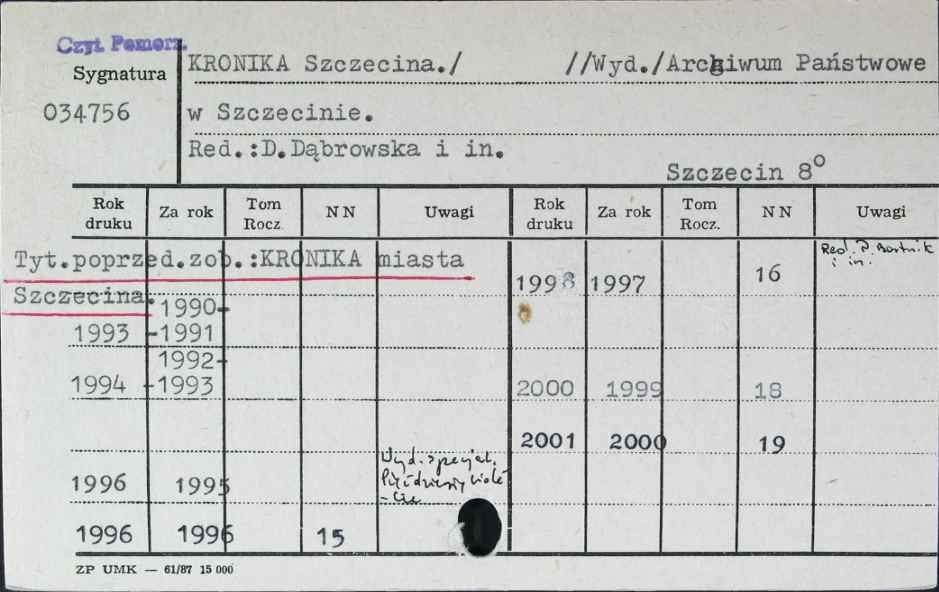 Czyt. Pomorz.
Sygnatura
034756
KRONIKA Szczecina./ //Wyd./Archiwum Państwowe
w Szczecinie.
Red.:D.Dąbrowska i in.
Szczecin 8º
Rok druku Za rok Tom Rocz. NN Uwagi Rok druku Za rok Tom Rocz. NN Uwagi
Tyt.poprzed.zob.:KRONIKA miasta
Szczecina.
1990-
1993 -1991
1992-
1994 -1993
Wyd. specjal.
Pięćdziesięciole
-cie
1996 1995
1996 1996 15
1998 1997 16 Red. P. Bartnik
i in.
2000 1999 18
2001 2000 19
ZP UMK — 61/87 15 000